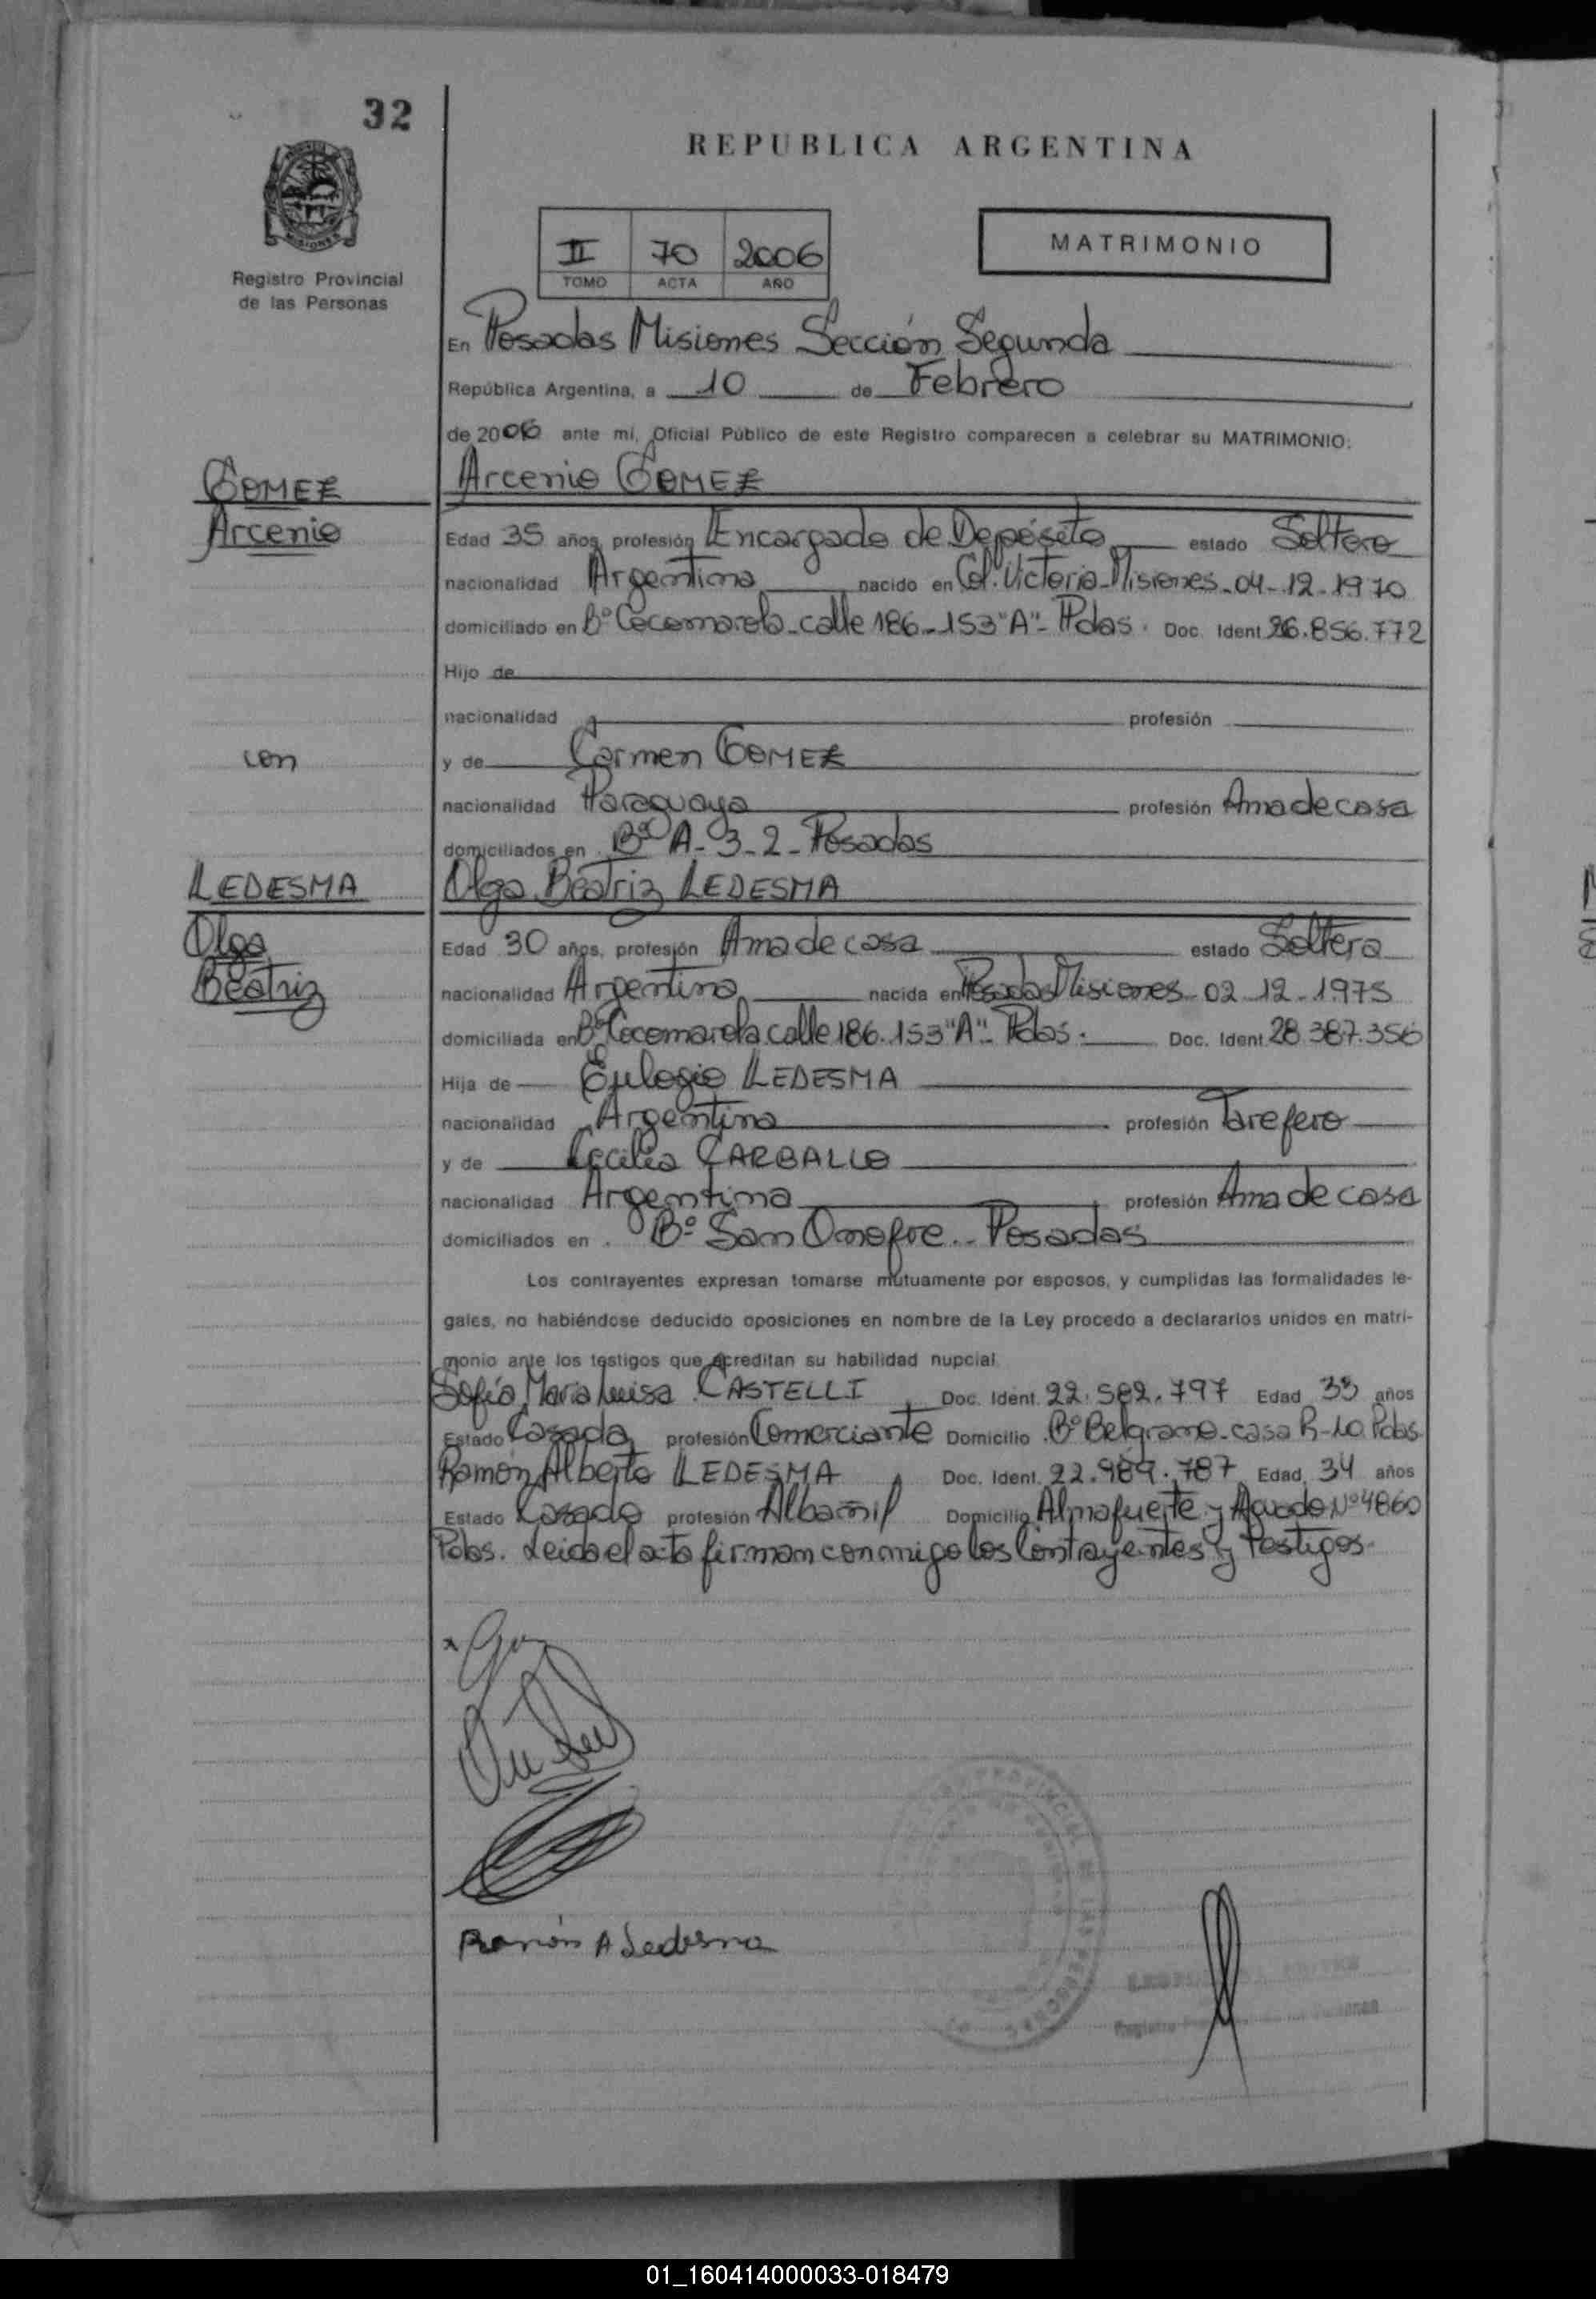 32
REPUBLICA ARGENTINA
MISIONES
Registro Provincial
de las Personas
II 70 2006
TOMO ACTA AÑO
MATRIMONIO
En Posadas Misiones Sección Segunda
República Argentina, a 10 de Febrero
de 2006 ante mi, Oficial Público de este Registro comparecen a celebrar su MATRIMONIO:
GOMEZ
Arcenio GOMEZ
Arcenio
Edad 35 años, profesión Encargado de Depósito estado Soltero
nacionalidad Argentina nacido en Col. Victoria-Misiones-04-12-1970
domiciliado en Bº Cocomarola-calle 186-153"A"-Pdas. Doc. Ident. 26.856.772
Hijo de
nacionalidad profesión
con
y de Carmen GOMEZ
nacionalidad Paraguaya profesión Ama de casa
domiciliados en Bº A-3-2-Posadas
LEDESMA
Olga Beatriz LEDESMA
Olga
Beatriz
Edad 30 años, profesión Ama de casa estado Soltera
nacionalidad Argentina nacida en Posadas Misiones-02-12-1975
domiciliada en Bº Cocomarola calle 186-153"A"-Pdas.- Doc. Ident. 28.387.356
Hija de Eulogio LEDESMA
nacionalidad Argentina profesión Tarefero
y de Cecilia CARBALLO
nacionalidad Argentina profesión Ama de casa
domiciliados en Bº San Onofre-Posadas
Los contrayentes expresan tomarse mutuamente por esposos, y cumplidas las formalidades le-
gales, no habiéndose deducido oposiciones en nombre de la Ley procedo a declararlos unidos en matri-
monio ante los testigos que acreditan su habilidad nupcial
Sofía Maria Luisa CASTELLI, Doc. Ident. 22.582.797 Edad 33 años
Estado Casada profesión Comerciante Domicilio Bº Belgrano-casa R-10 Pdas
Ramón Alberto LEDESMA, Doc. Ident. 22.989.787 Edad 34 años
Estado Casado profesión Albañil Domicilio Almafuerte y Aguado Nº 4860
Pdas. Leida el acta firman conmigo los Contrayentes y Testigos-
Ramón A Ledesma
01_160414000033-018479